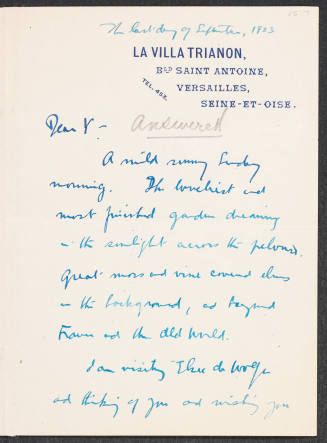 The last day of September, 1923
LA VILLA TRIANON,
BLD SAINT ANTOINE,
TEL. 452.
VERSAILLES,
SEINE-ET-OISE.
Dear V—
Answered
A mild sunny Sunday
morning. The loveliest and
most finished garden dreaming
in the sunlight across the pelouse.
Great moss and vine covered elms
in the background, and beyond
France and the Old World.
I am visiting Elsie de Wolfe
and thinking of you and wishing you